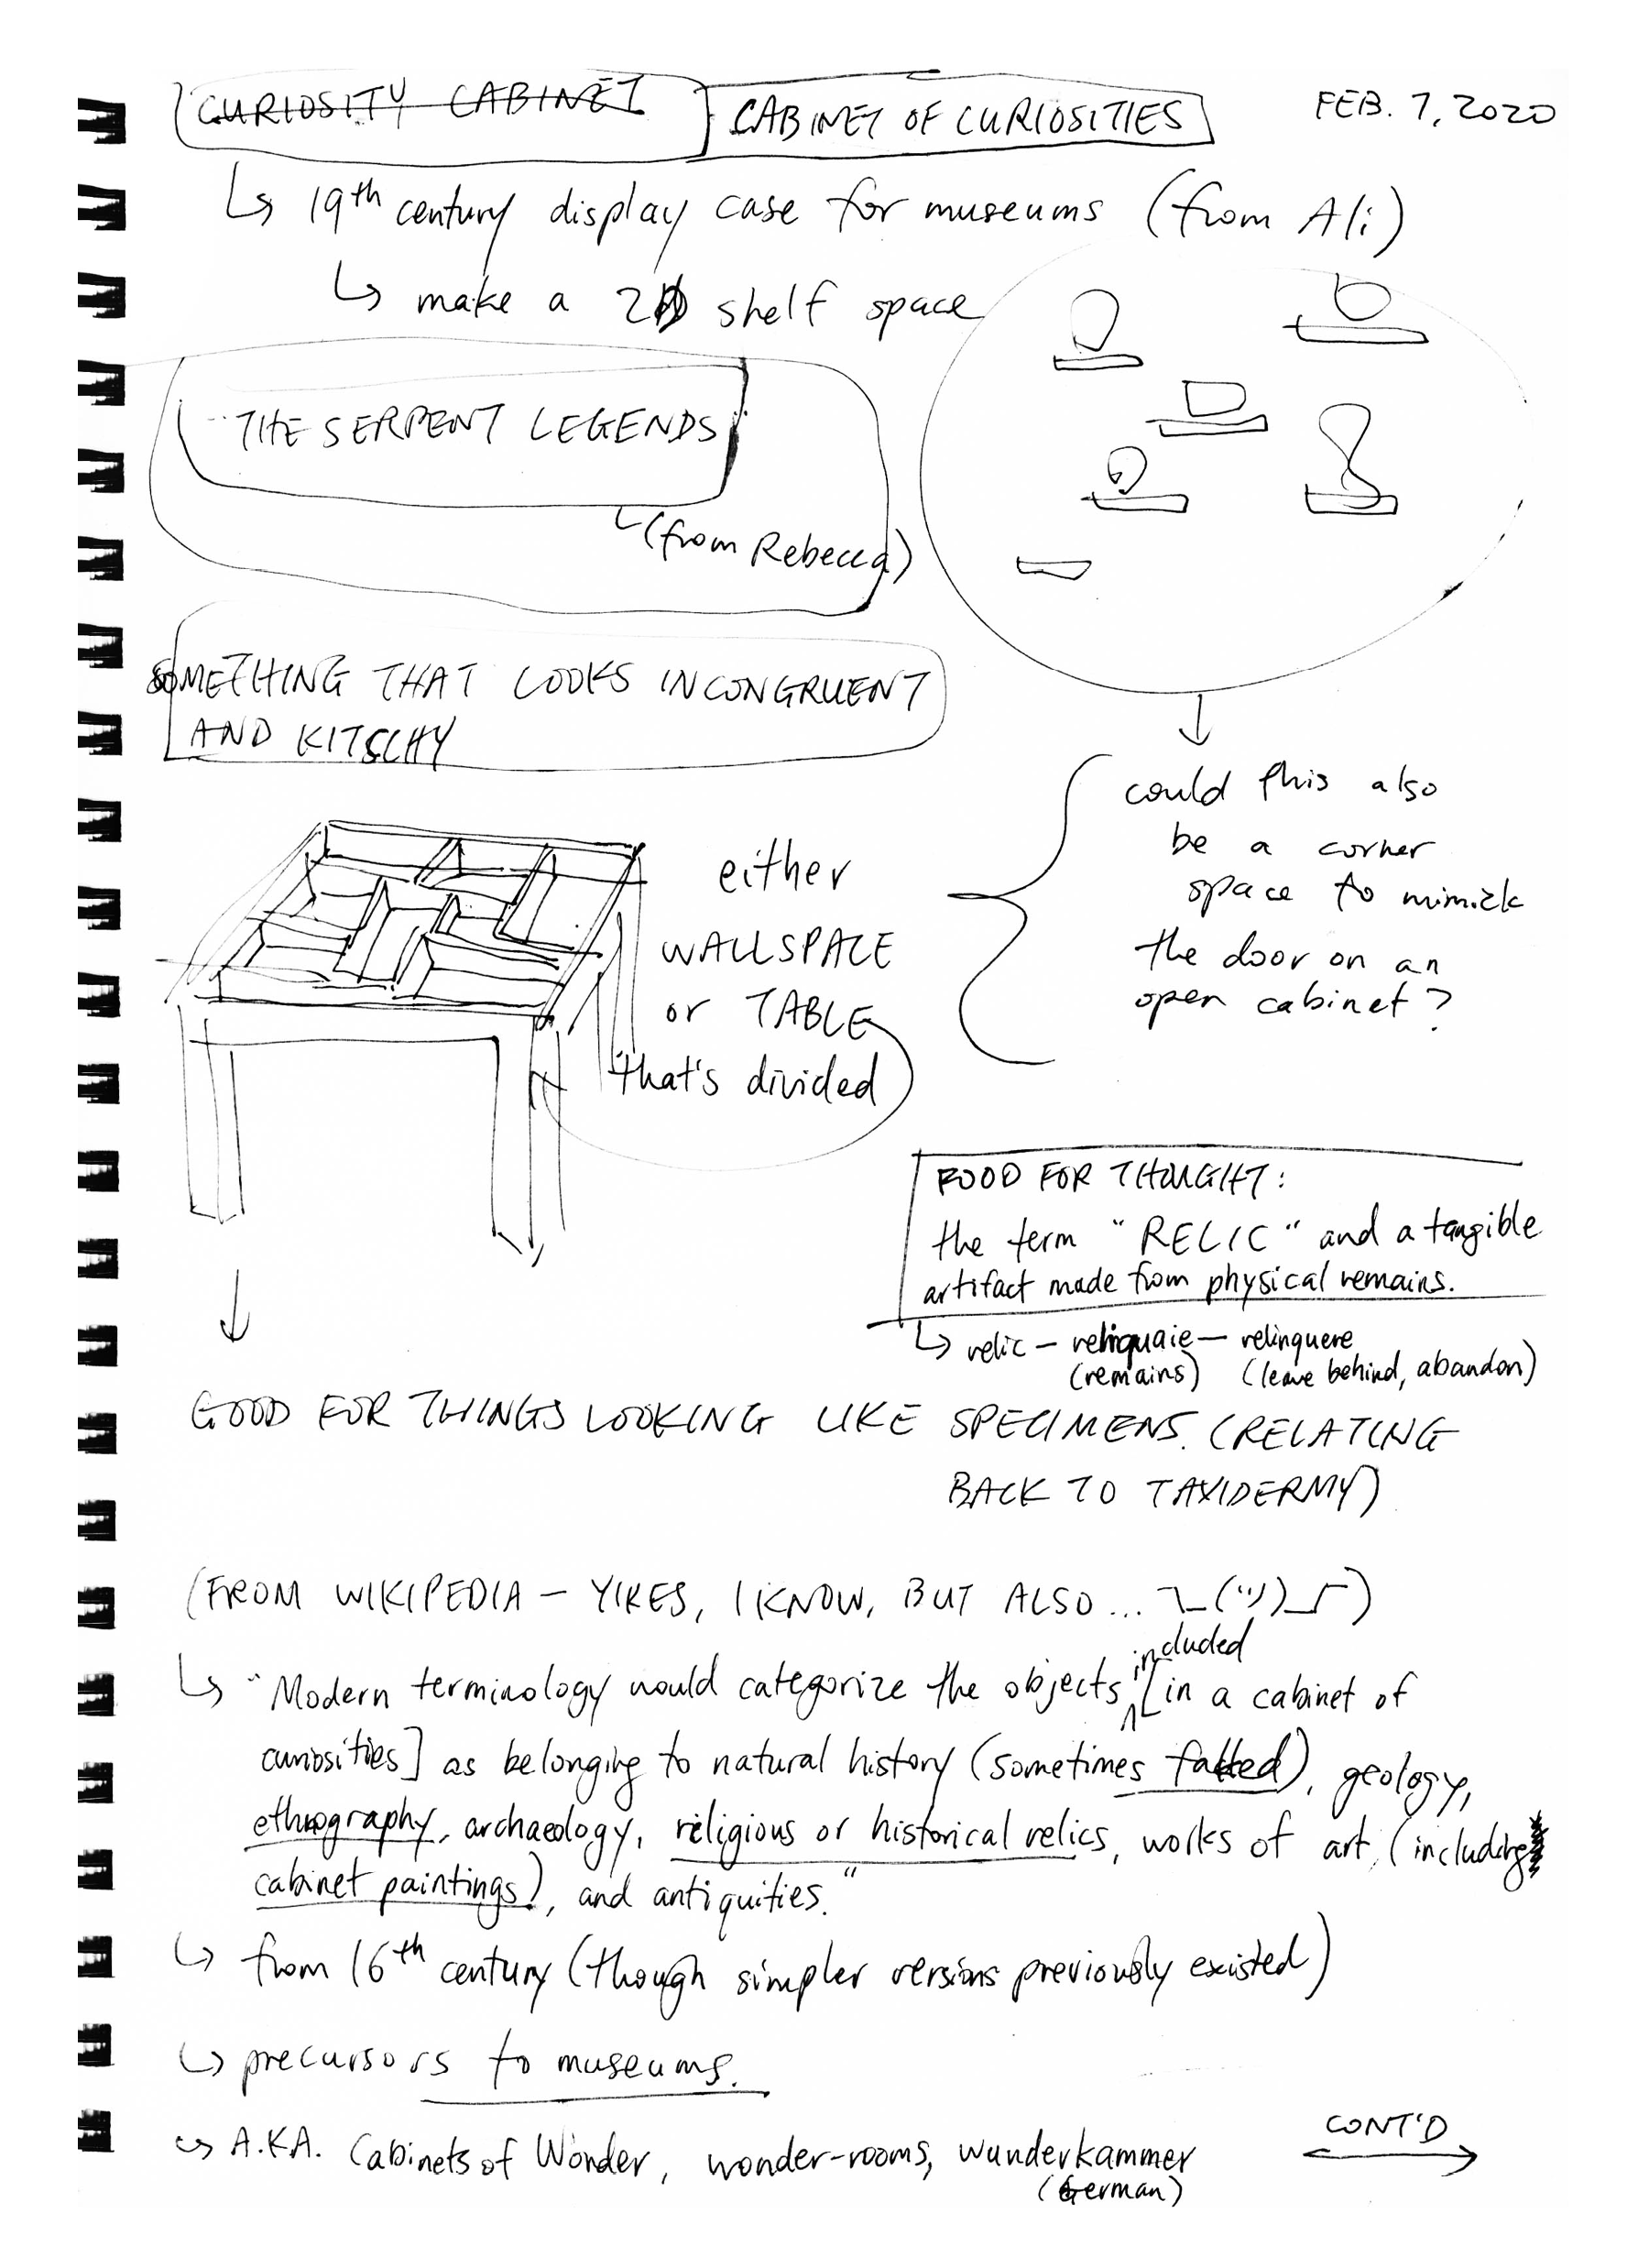 CURIOSITY CABINET CABINET OF CURIOSITIES FEB. 7, 2020
↳ 19th century display case for museums (from Ali)
↳ make a 2D shelf space
THE SERPENT LEGENDS
↳ (from Rebecca)
SOMETHING THAT LOOKS INCONGRUENT
AND KITSCHY
either
WALLSPACE
or TABLE
that's divided
could this also
be a corner
space to mimick
the door on an
open cabinet?
FOOD FOR THOUGHT:
the term "RELIC" and a tangible
artifact made from physical remains.
↳ relic – reliquaie – relinquere
(remains) (leave behind, abandon)
GOOD FOR THINGS LOOKING LIKE SPECIMENS. (RELATING
BACK TO TAXIDERMY)
(FROM WIKIPEDIA – YIKES, I KNOW, BUT ALSO... ¯\_(ツ)_/¯)
included
↳ "Modern terminology would categorize the objects [in a cabinet of
curiosities] as belonging to natural history (sometimes faked), geology,
ethnography, archaeology, religious or historical relics, works of art (including
cabinet paintings), and antiquities."
↳ from 16th century (though simpler versions previously existed)
↳ precursors to museums.
↳ A.K.A. Cabinets of Wonder, wonder-rooms, wunderkammer
(German)
CONT'D